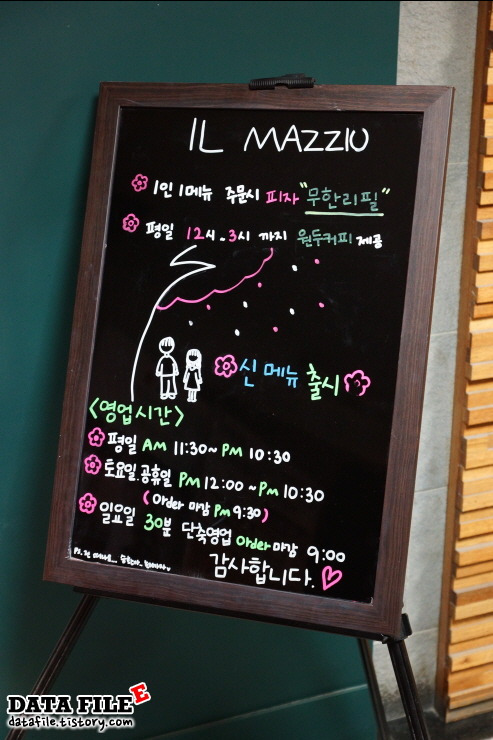 IL MAZZIO
1인 1메뉴 주문시 피자 "무한리필"
평일 12시~3시 까지 원두커피 제공
신 메뉴 출시
<영업시간>
평일 AM 11:30~PM 10:30
토요일.공휴일 PM 12:00~PM 10:30
(Order 마감 PM 9:30)
일요일 30분 단축영업 Order 마감 9:00
감사합니다.
P.S.
DATA FILE E
datafile.tistory.com